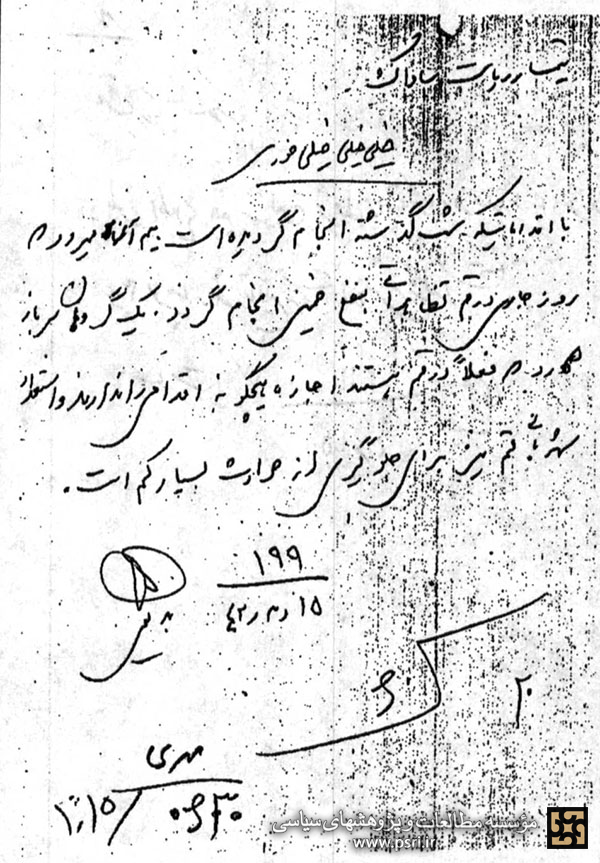 تیمسار ریاست ساواک
خیلی خیلی خیلی فوری
با اقداماتیکه شب گذشته انجام گردیده است بیم آنکه میرود در
روز جاری در قم تظاهراتی بنفع خمینی انجام گردد. یک گروهان سرباز
که در فعلاً در قم هستند اجازه هیچگونه اقدامی را ندارند و استعداد
شهربانی قم نیز برای جلوگیری از حوادث بسیار کم است.
۱۹۹
۱۵
بدیعی
مهدی
۰۶۳۰ / ۱۵
مؤسسه مطالعات و پژوهشهای سیاسی
www.psri.ir